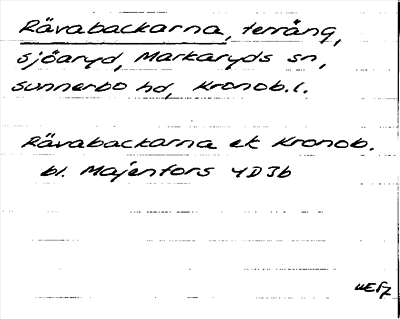 Rävabackarna, terräng,
sjöaryd, Markaryds sn,
sunnerbo hd, Kronob.l.
Rävabackarna ek Kronob.
bl. Majenfors 4D3b